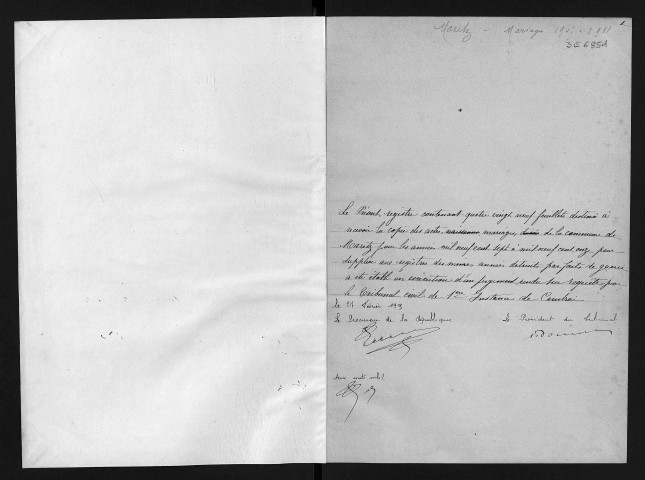 Maretz - Mariages
3 E 6851
Le Présent registre contenant quatre vingt neuf feuillets destiné à
recevoir la copie des actes naissances, mariages, décès de la commune de
Maretz pour les années mil neuf cent sept à mil neuf cent onze pour
suppléer aux registres des mêmes années détruits par faits de guerre
a été établi en exécution d'un jugement rendu sur requête par
le Tribunal civil de 1ère Instance de Cambrai
le 24 février 193
Le Procureur de la République Le Président du Tribunal